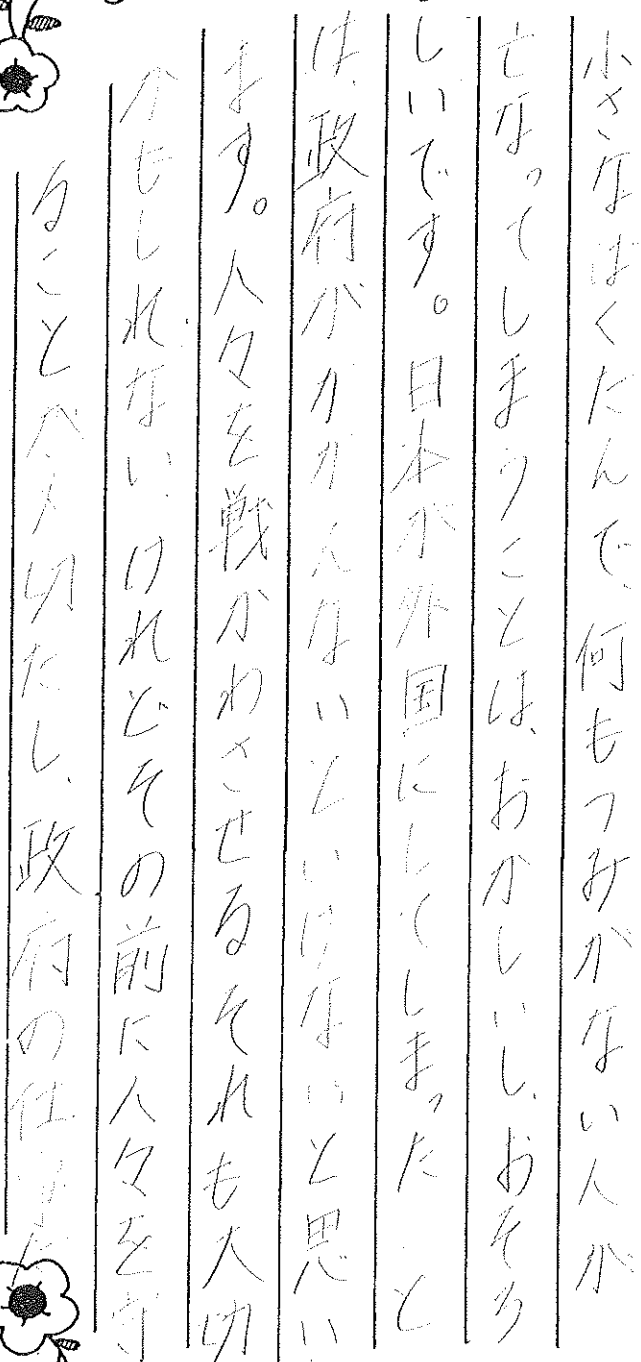 小さなばくだんで、何もつみがない人が
亡なってしまうことは、おかしいし、おそろ
しいです。日本が外国にしてしまったこと
は、政府がかかんないといけないと思い
ます。人々を戦かわさせるそれも大切
かもしれない、けれどその前に人々を守
ることが大切だし、政府の仕事だ